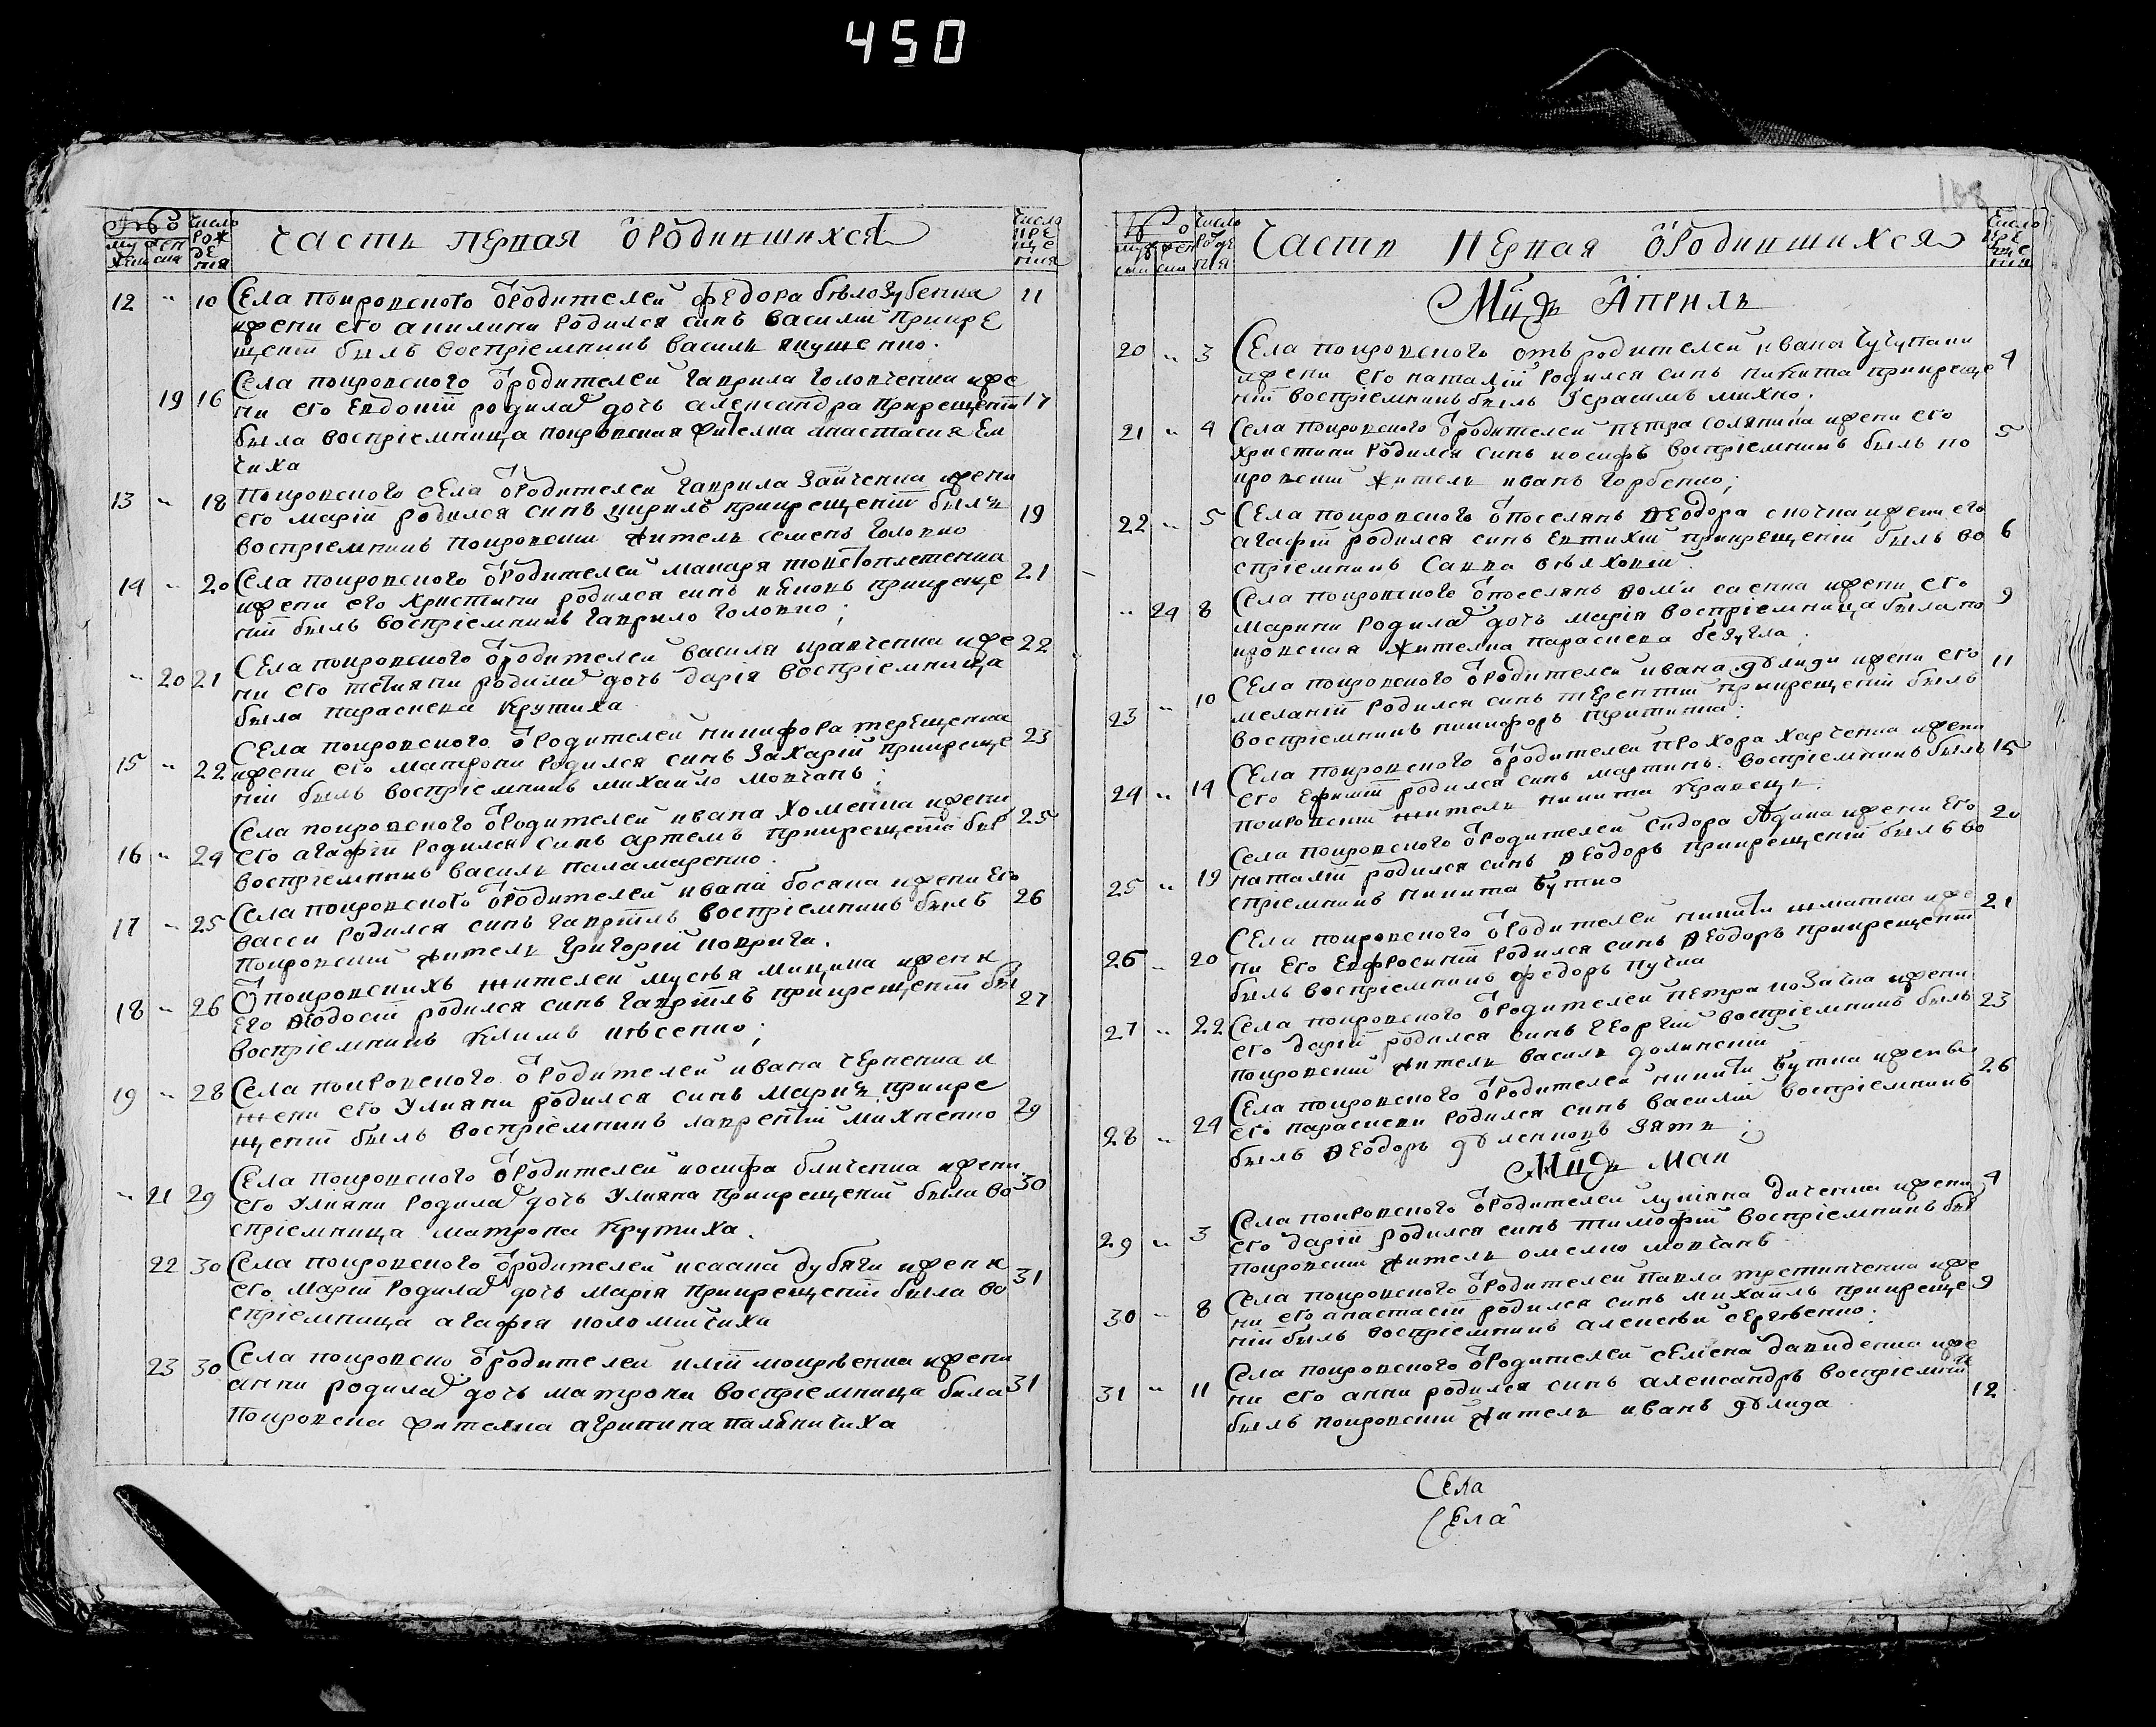 450
Число
Число
Часть первая ѿ родившихся
12 " 10 Села покровского ѿ родителей федора белозубенка 11
и жени его акилини родился синъ василий при крѣ
щенїи былъ воспрїемникъ василь якушенко.
Села покровского ѿ родителей гаврила головченка и же
19 16 ни его Евдокїи родилась дочь александра при крещенїи 17
была воспрїемница покровская жителка анастасия
чиха
Покровского села ѿ родителей гаврила зайченка и жени
13 " 18 его марїи родился синъ кирилъ при крещенїи былъ 19
воспрїемникъ покровский житель семенъ головко
14 " 20 Села покровского ѿ родителей макаря товстоплетенка 21
и жени его христини родился синъ при креще
нїи былъ воспрїемникъ гаврило головко;
Села покровского ѿ родителей василя кравченка и же 22
" 20 21 ни его тетияни родилась дочь дарїя воспрїемница
была параскева крутиха
Села покровского ѿ родителей никифора терещенка 23
15 " 22 и жени его матрони родился синъ захарїй при креще
нїи былъ воспрїемникъ михайло мовчанъ;
Села покровского ѿ родителей ивана хоменка и жени 25
16 " 24 его агафїи родился синъ артемъ при крещенїи был
воспрїемникъ василь паламаренко.
Села покровского ѿ родителей ивана босака и жени его
17 " 25 васси родился синъ гаврїилъ воспрїемникъ былъ 26
покровский житель григорїй коврига.
Ѿ покровскихъ жителей мусѣя мицика и жени
18 " 26 его ѳеодосїи родился синъ гаврїилъ при крещенїи бы 27
воспрїемникъ климъ
Села покровского ѿ родителей ивана черненка и
19 " 28 жени его улияни родился синъ марикъ при кре
щенїи былъ воспрїемникъ лаврентїй михненко 29
Села покровского ѿ родителей иосифа бличенка и жени
" 21 29 его улияни родилась дочь улияна при крещенїи была во 30
спрїемница матрона крутиха.
22 30 Села покровского ѿ родителей исаака дубяги и жени
его марїи родилась дочь марїя при крещенїи была во 31
спрїемница агафїя коломийчиха
Села покровско ѿ родителей илїи мокрѣенка и жени
23 30 анни родилась дочь матрона воспрїемница была 31
покровска жителка агрипина палѣничиха
Число
Число
Части первая ѿ родившихся
Мцъ Априль
Села покровского отъ родителей ивана чучупаки
20 " 3 и жени его наталїи родился синъ никита при креще 4
нїи воспрїемникъ былъ герасимъ михно;
Села покровского ѿ родителей петра соляника и жени его
21 " 4 христини родился синъ иосифъ воспрїемникъ былъ по 5
кровский житель иванъ горбенко;
Села покровского ѿ поселянъ ѳеодора сночка и жени его
22 " 5 агафїи родился синъ евтихїй при крещенїи былъ во 6
спрїемникъ савка
Села покровского ѿ поселянъ саенка и жени его
" 24 8 марини родилась дочь марїя воспрїемница была по 9
кровская жителка параскева безугла;
Села покровского ѿ родителей ивана джлиди и жени его 11
23 " 10 меланїи родился синъ терентїй при крещенїи былъ
воспрїемникъ никифоръ притика;
Села покровского ѿ родителей прохора харченка и жени
24 " 14 его ефимїи родился синъ мартинъ. воспрїемникъ былъ 15
покровский житель никита кравецъ.
Села покровского ѿ родителей сидора и жени его
25 " 19 наталїи родился синъ ѳеодоръ при крещенїи былъ во 20
спрїемникъ никита бутко
Села покровского ѿ родителей никити шматка и же
26 " 20 ни его евфросинїи родился синъ ѳеодоръ при крещенїи 21
былъ воспрїемникъ федоръ пучка
27 " 22 Села покровского ѿ родителей петра козачка и жени
его дарїи родился синъ георгїй воспрїемникъ былъ 23
покровский житель василь долинский
Села покровского ѿ родителей никити бутка и жены
28 " 24 его параскеви родился синъ василий воспрїемникъ 26
былъ ѳеодоръ зять;
Мцъ Маи
Села покровского ѿ родителей лукїяна диченка и жени 4
29 " 3 его дарїи родился синъ тимофїй воспрїемникъ был
покровский житель омелко мовчанъ
Села покровского ѿ родителей павла третинченка и же
30 " 8 ни его анастасїи родился синъ михаилъ при креще 9
нїи былъ воспрїемникъ алексѣй сергѣенко.
Села покровского ѿ родителей семена давиденка и же
31 " 11 ни его анни родился синъ александръ воспрїемник 12
былъ покровский житель иванъ джлида
Села
Села